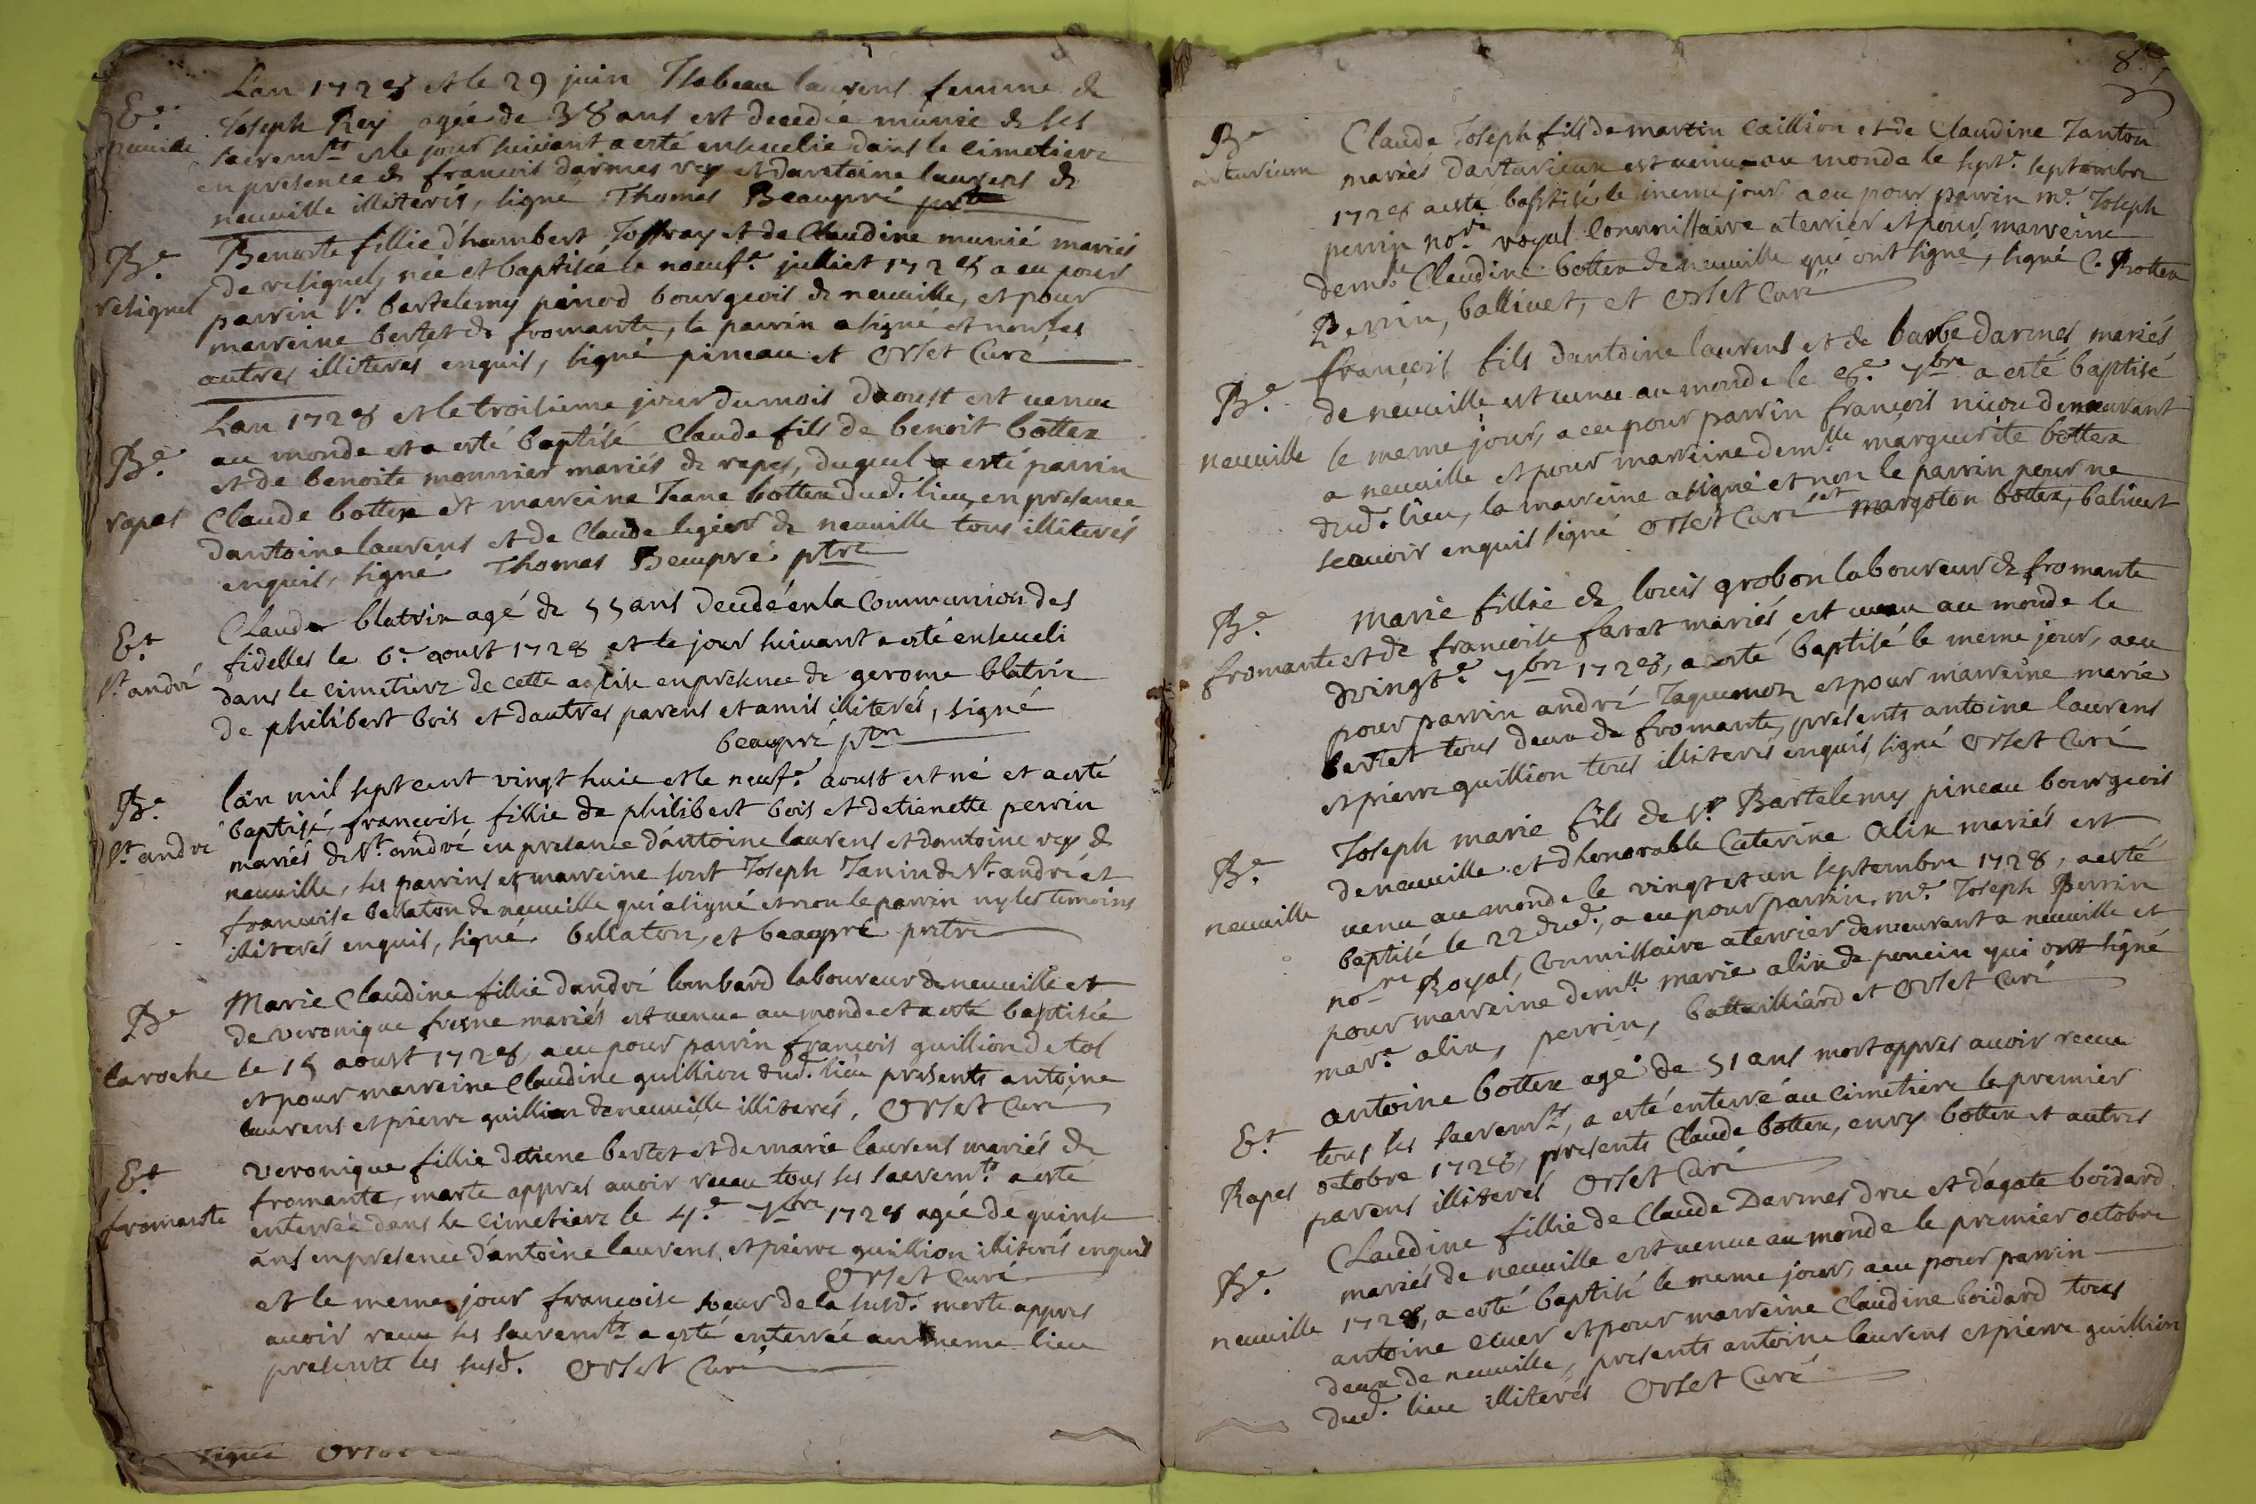 L'an 1728 et le 29 juin Isabeau laurens femme de
Et. neuville
Joseph Rey agée de 38 ans est decedée munie de ses
sacremts et le jour suivant a esté ensevelie dans le cimetiere
en presence de francois darmes rey et dantoine laurens de
neuville illiterés, signé Thomas Beaupré ptre
Be. resignel
Benoite fillie d'humbert Joffray et de Claudine munié mariés
de resignel, née et baptisée le neufe. julliet 1728 a eu pour
parrin sr. bartelemy pinod bourgeois de neuville, et pour
marreine bertet de fromante, le parrin a signé et non les
autres illiterés enquis, signé pineau et Orset Curé
Be. rapes
Lan 1728 et le troisieme jour du mois daoust est venu
au monde et a esté baptisé Claude fils de benoit bottex
et de benoite monnier mariés de rapes, duquel a esté parrin
Claude bottex et marreine Jeane bottex dud. lieu, en presance
dantoine laurens et de Claude legier de neuville tous illiterés
enquis, signé Thomas Beaupré ptre
Et. st. andré
Claude blatrix agé de 55 ans decedé en la Communion des
fidelles le 6e. aoust 1728 et le jour suivant a esté enseveli
dans le cimetiere de cette eglise en presence de gerome blatrix
de philibert bois et dautres parens et amis illiterés, signé
beaupré ptre
Be. st. andré
lan mil sept cent vingt huit et le neufe. aoust est né et a esté
baptisé, francoise fillie de philibert bois et detienette perrin
mariés de st. andré en presance dantoine laurens et dantoine rey de
neuville, ses parrins et marreine sont Joseph Janin de st. andré et
francoise bellaton de neuville qui a signé et non le parrin ny les temoins
illiterés enquis, signé bellaton, et beaupré pretre
Be. laroche
Marie Claudine fillie dandré lombard laboureur de neuville et
de veronique fresne mariés est venue au monde et a esté baptisée
le 15 aoust 1728 a eu pour parrin francois guillion de tol
et pour marreine Claudine guillion dud. lieu presents antoine
laurens et pierre guillion de neuville illiterés. Orset Curé
Et. fromante
Veronique fillie detiene bertet et de marie laurens mariés de
fromante, morte appres avoir receu tous ses sacremts a esté
enterrée dans le cimetiere le 4.e 7bre 1728 agée de quinse
ans en presence d'antoine laurens et pierre guillion illiterés enquis
Orset Curé
et le meme jour francoise soeur de la susd. morte appres
avoir receu ses sacremts a esté enterrée au meme lieu
presents les susd. Orset Curé
signé
Be.
Claude Joseph fils de martin Caillion et de Claudine Janton
mariés darturieux est venu au monde le septe. septembre
1728 a esté baptisé le meme jour a eu pour parrin me. Joseph
perrin nore. royal Commissaire a terrier et pour marreine
demlle Claudine bottex de neuville qui ont signé, signé C. Bottex
Perrin, ballivet, et Orset Curé
Be. neuville
francois fils dantoine laurens et de barbe darmes mariés
de neuville est venu au monde le 8e. 7bre a esté baptisé
le meme jour, a eu pour parrin francois nicou demeurant
a neuville et pour marreine demlle marguerite bottex
dud. lieu, la marreine a signé et non le parrin pour ne
scavoir enquis signé Orset Curé et margoton bottex, balivet
Be. fromante
Marie fillie de louis grobon laboureur de fromante
et de francoise farat mariés est venu au monde le
vingte. 7bre 1728, a esté baptisé le meme jour, a eu
pour parrin andré Jaquemoz et pour marreine marie
bertet tous deux de fromante, presents antoine laurens
et pierre guillion tous illiterés enquis, signé Orset Curé
Be. neuville
Joseph marie fils de sr. Bartelemy pineau bourgeois
de neuville et dhonorable Caterine Alix mariés est
venu au monde le vingt et un septembre 1728, a esté
baptisé le 22 dud., a eu pour parrin, me. Joseph Perrin
nore Royal, Commissaire a terrier demeurant a neuville et
pour marreine demlle marie alix de poncin qui ont signé
mare. alix, perrin, battailliard et Orset Curé
Et. Rapes
antoine bottex agé de 51 ans mort appres avoir receu
tous ses sacremts, a esté enterré au cimetiere le premier
octobre 1728, presents Claude bottex, envy bottex et autres
parens illiterés Orset Curé
Be. neuville
Claudine fillie de Claude Darmes dru et d'agate boidard
mariés de neuville est venue au monde le premier octobre
1728, a esté baptisé le meme jour, a eu pour parrin
antoine et pour marreine Claudine boidard tous
deux de neuville, presents antoine laurens et pierre guillion
dud. lieu illiterés Orset Curé